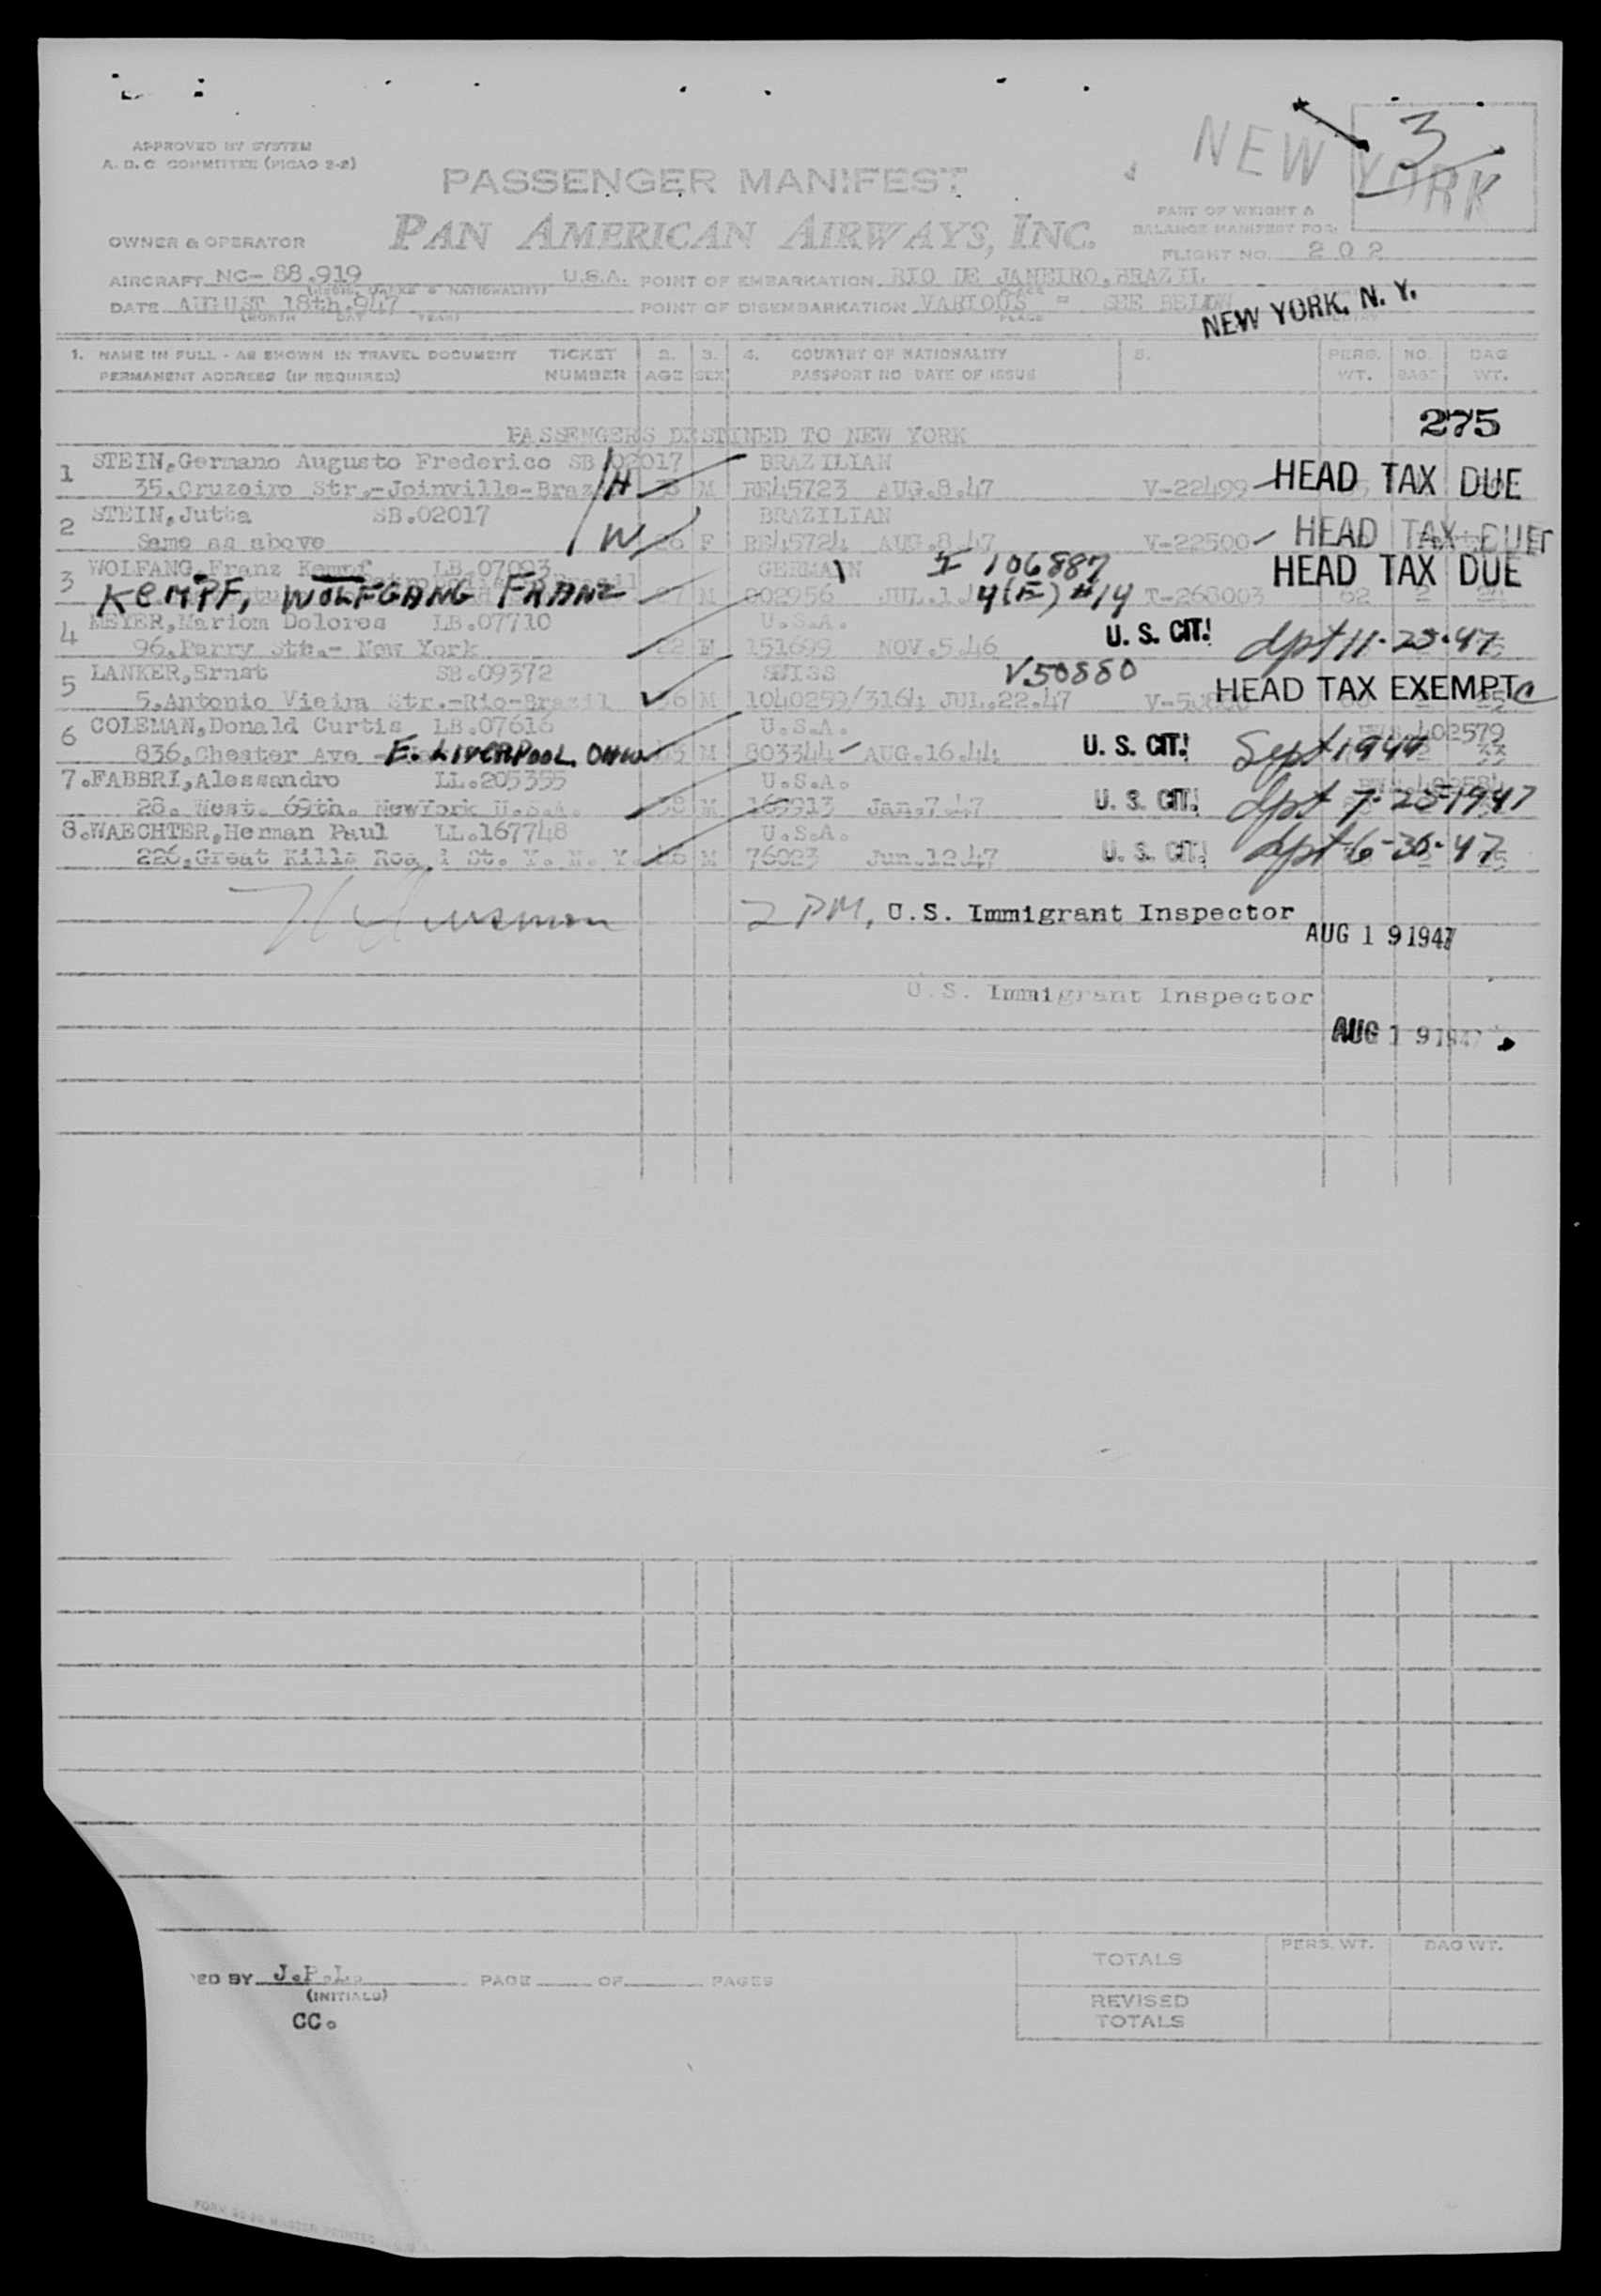 APPROVED BY SYSTEM
A. D. C COMMITTEE (PICAO 2-2)
NEW YORK
3
PASSENGER MANIFEST
PART OF WEIGHT &
BALANCE MANIFEST FOR:
OWNER & OPERATOR
PAN AMERICAN AIRWAYS, INC.
FLIGHT NO. 202
AIRCRAFT NC-88.919 U.S.A. POINT OF EMBARKATION RIO DE JANEIRO, BRAZIL
DATE AUGUST 18th.947 POINT OF DISEMBARKATION VARIOUS = SEE BELOW
(MONTH DAY YEAR) PLACE
NEW YORK, N. Y.
1. NAME IN FULL - AS SHOWN IN TRAVEL DOCUMENT TICKET 2. 3. 4. COUNTRY OF NATIONALITY 5. PERS. NO. BAG
PERMANENT ADDRESS (IF REQUIRED) NUMBER AGE SEX PASSPORT NO DATE OF ISSUE WT. BAGS WT.
275
PASSENGERS DESTINED TO NEW YORK
1 STEIN,Germano Augusto Frederico SB 02017 BRAZILIAN
35.Cruzeiro Str.-Joinville-Braz H M RE45723 AUG.8.47 V-22499 HEAD TAX DUE
2 STEIN,Jutta SB.02017 BRAZILIAN
Same as above W F RE45724 AUG.8.47 V-22500 HEAD TAX DUE
3 WOLFANG,Franz Kempf LB.07093 GERMAN I 106887 HEAD TAX DUE
KEMPF, WOLFGANG FRANZ M 802956 JUL.1 4(E) #14 T-268003 62 2
4 MEYER,Mariom Dolores LB.07710 U.S.A.
96.Perry Str.- New York 22 F 151699 NOV.5.46 U. S. CIT! dpt 11-25-47
5 LANKER,Ernst SB.09372 SWISS V.50880
5.Antonio Vieira Str.-Rio-Brazil M 1040259/3164 JUL.22.47 HEAD TAX EXEMPT
6 COLEMAN,Donald Curtis LB.07616 U.S.A. 402579
836.Chester Ave - E. LIVERPOOL, OHIO M 803344 - AUG.16.44 U. S. CIT! Sept 1944
7.FABBRI,Alessandro LL.205355 U.S.A.
28. West. 69th. NewYork U.S.A. 38 M Jan.7.47 U. S. CIT! dpt 7-28-1947
8.WAECHTER,Herman Paul LL.167748 U.S.A.
226.Great Kills Roa d St. Y. N. Y. M 76023 Jun.12.47 U. S. CIT! dpt 6-30-47
2 PM, U.S. Immigrant Inspector
AUG 19 1947
U.S. Immigrant Inspector
AUG 19 1947
PERS. WT. BAG WT.
TOTALS
ED BY J.P.L. PAGE OF PAGES
(INITIALS)
REVISED
TOTALS
CC.